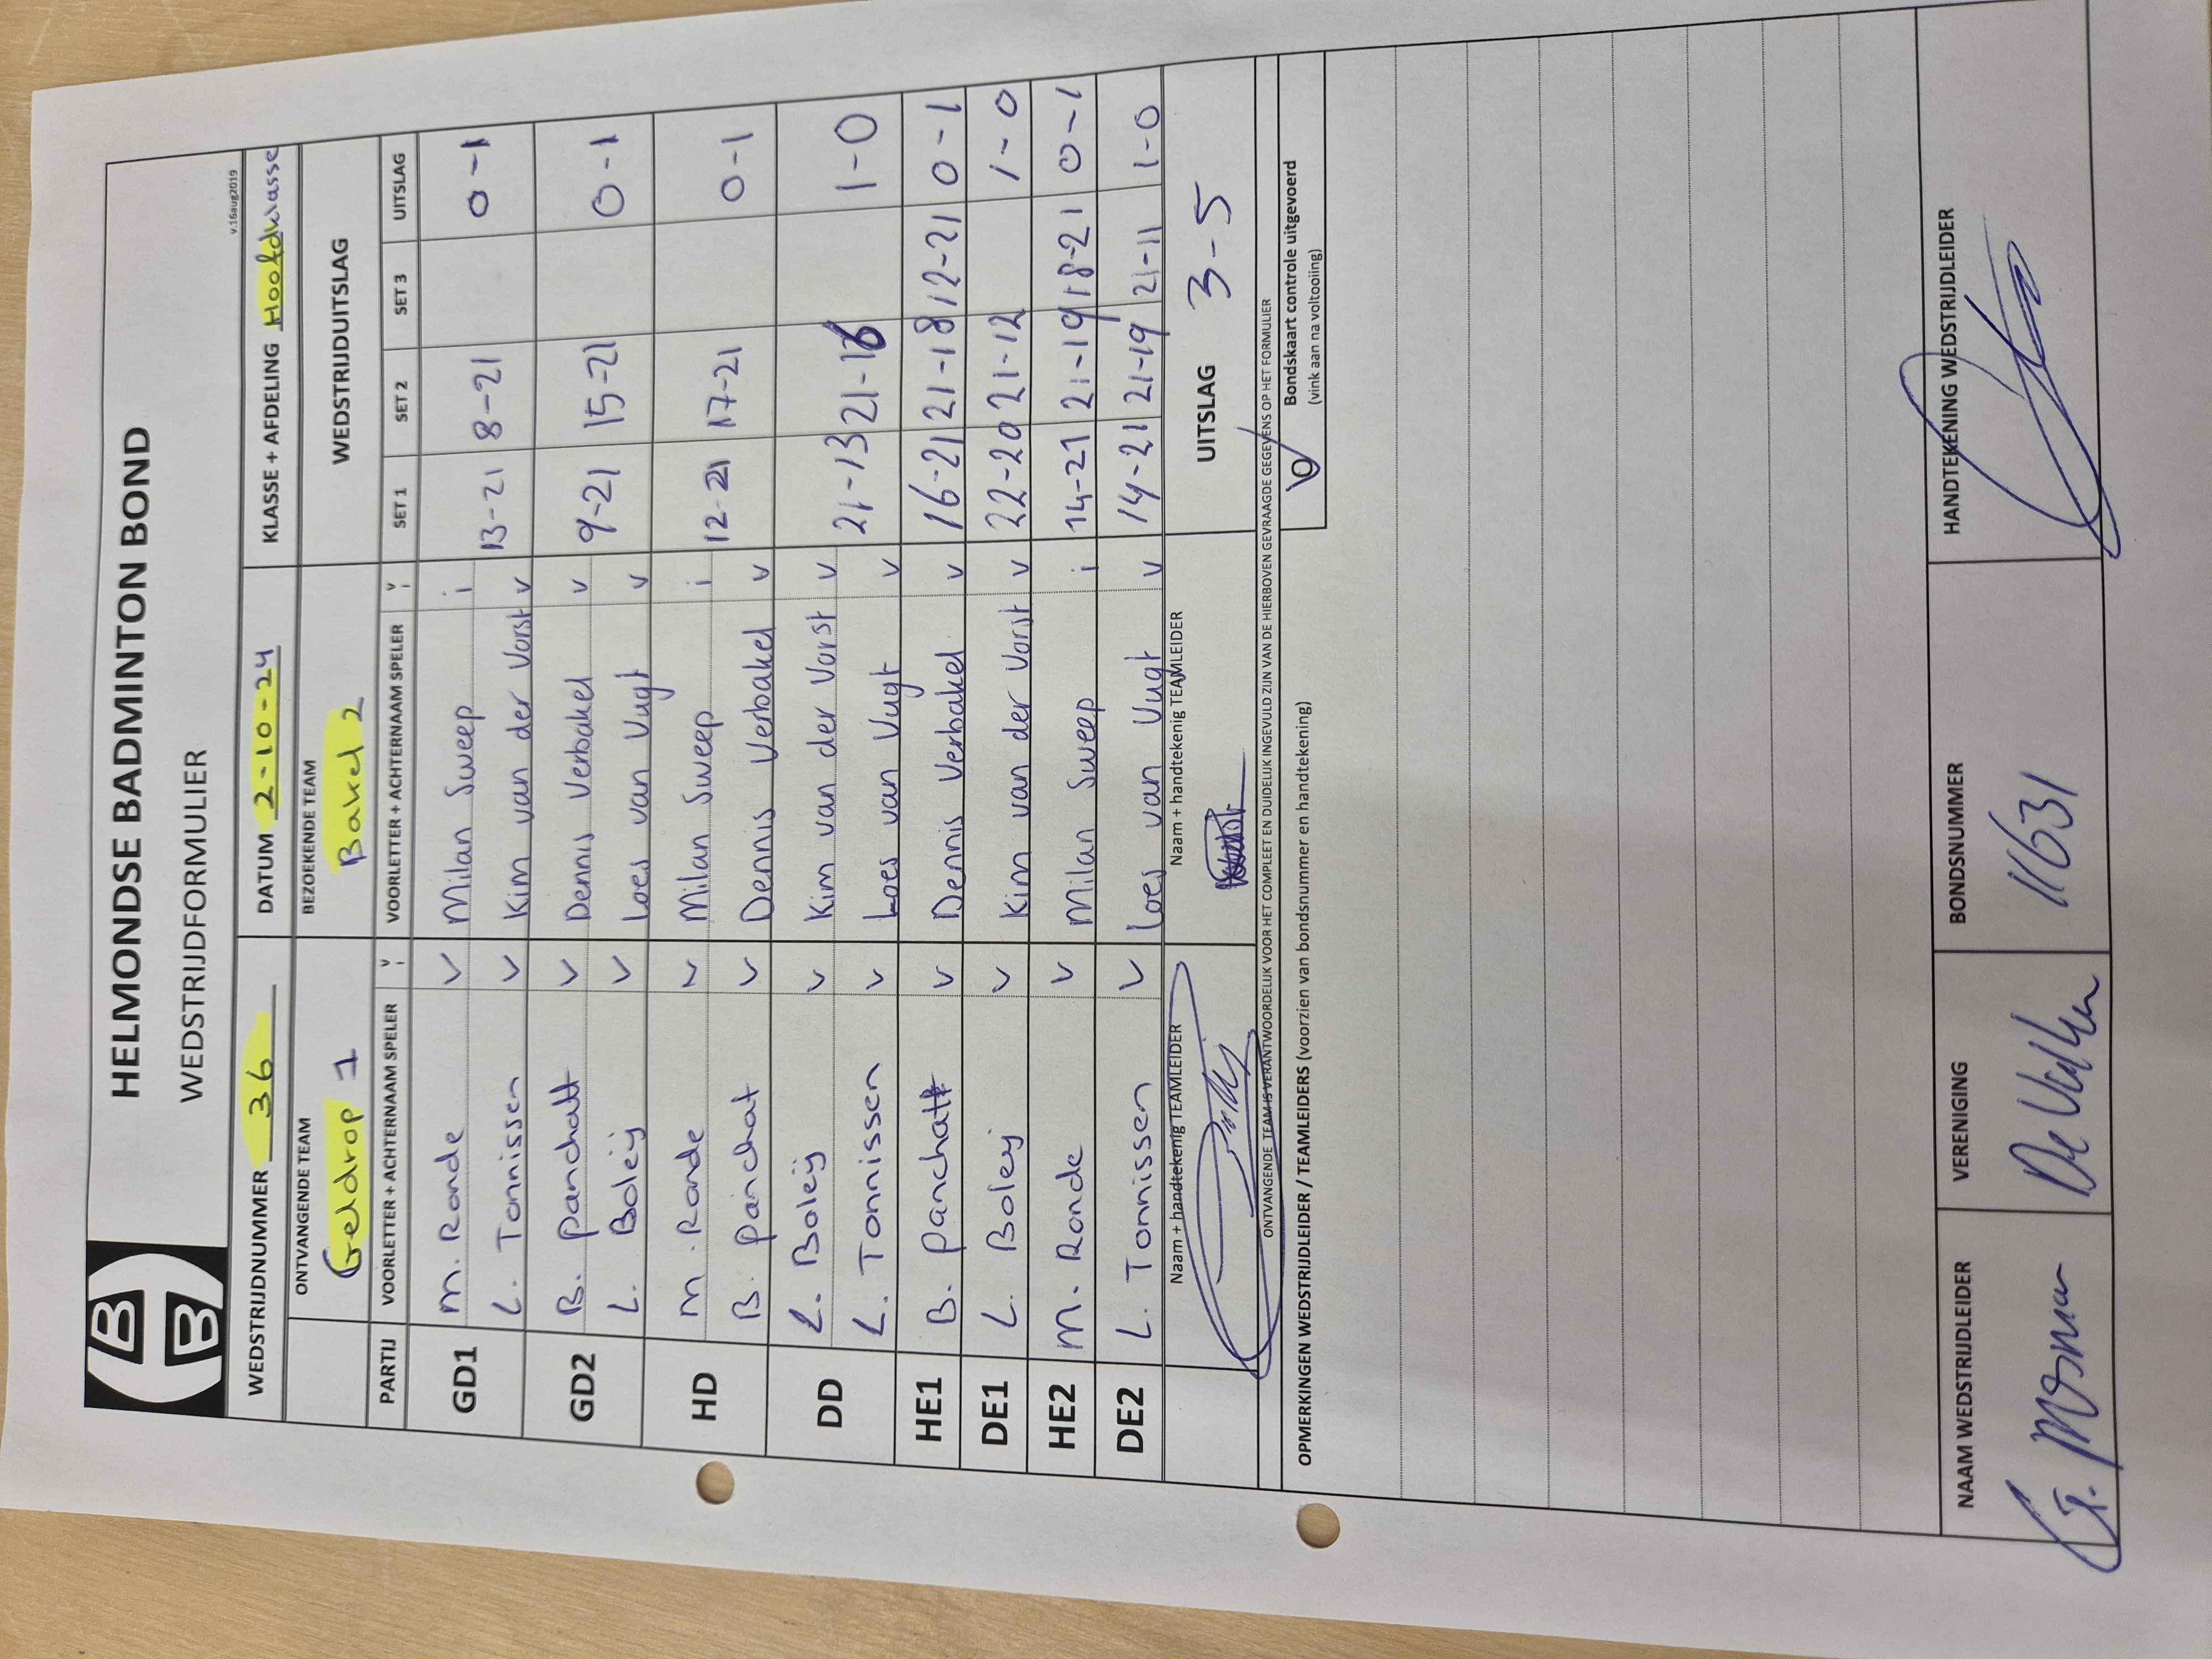 HELMONDSE BADMINTON BOND
WEDSTRIJDFORMULIER
v.16aug2019
WEDSTRIJDNUMMER 36 DATUM 2-10-24 KLASSE + AFDELING Hoofdklasse
ONTVANGENDE TEAM BEZOEKENDE TEAM WEDSTRIJDUITSLAG
Geldrop 1 Bakel 2
PARTIJ VOORLETTER + ACHTERNAAM SPELER v i VOORLETTER + ACHTERNAAM SPELER v i SET 1 SET 2 SET 3 UITSLAG
GD1 M. Ronde v Milan Sweep i 13-21 8-21 0-1
L. Tonnissen v Kim van der Vorst v
GD2 B. Panchatt v Dennis Verbakel v 9-21 15-21 0-1
L. Boleij v Loes van Vugt v
HD M. Ronde v Milan Sweep i 12-21 17-21 0-1
B. Panchat v Dennis Verbakel v
DD L. Boleij v Kim van der Vorst v 21-13 21-16 1-0
L. Tonnissen v Loes van Vugt v
HE1 B. Panchatt v Dennis Verbakel v 16-21 21-18 12-21 0-1
DE1 L. Boleij v Kim van der Vorst v 22-20 21-12 1-0
HE2 M. Ronde v Milan Sweep i 14-21 21-19 18-21 0-1
DE2 L. Tonnissen v Loes van Vugt v 14-21 21-19 21-11 1-0
Naam + handtekenig TEAMLEIDER Naam + handtekenig TEAMLEIDER UITSLAG 3-5
ONTVANGENDE TEAM IS VERANTWOORDELIJK VOOR HET COMPLEET EN DUIDELIJK INGEVULD ZIJN VAN DE HIERBOVEN GEVRAAGDE GEGEVENS OP HET FORMULIER
OPMERKINGEN WEDSTRIJDLEIDER / TEAMLEIDERS (voorzien van bondsnummer en handtekening)
Bondskaart controle uitgevoerd
(vink aan na voltooiing)
NAAM WEDSTRIJDLEIDER VERENIGING BONDSNUMMER HANDTEKENING WEDSTRIJDLEIDER
De 11631